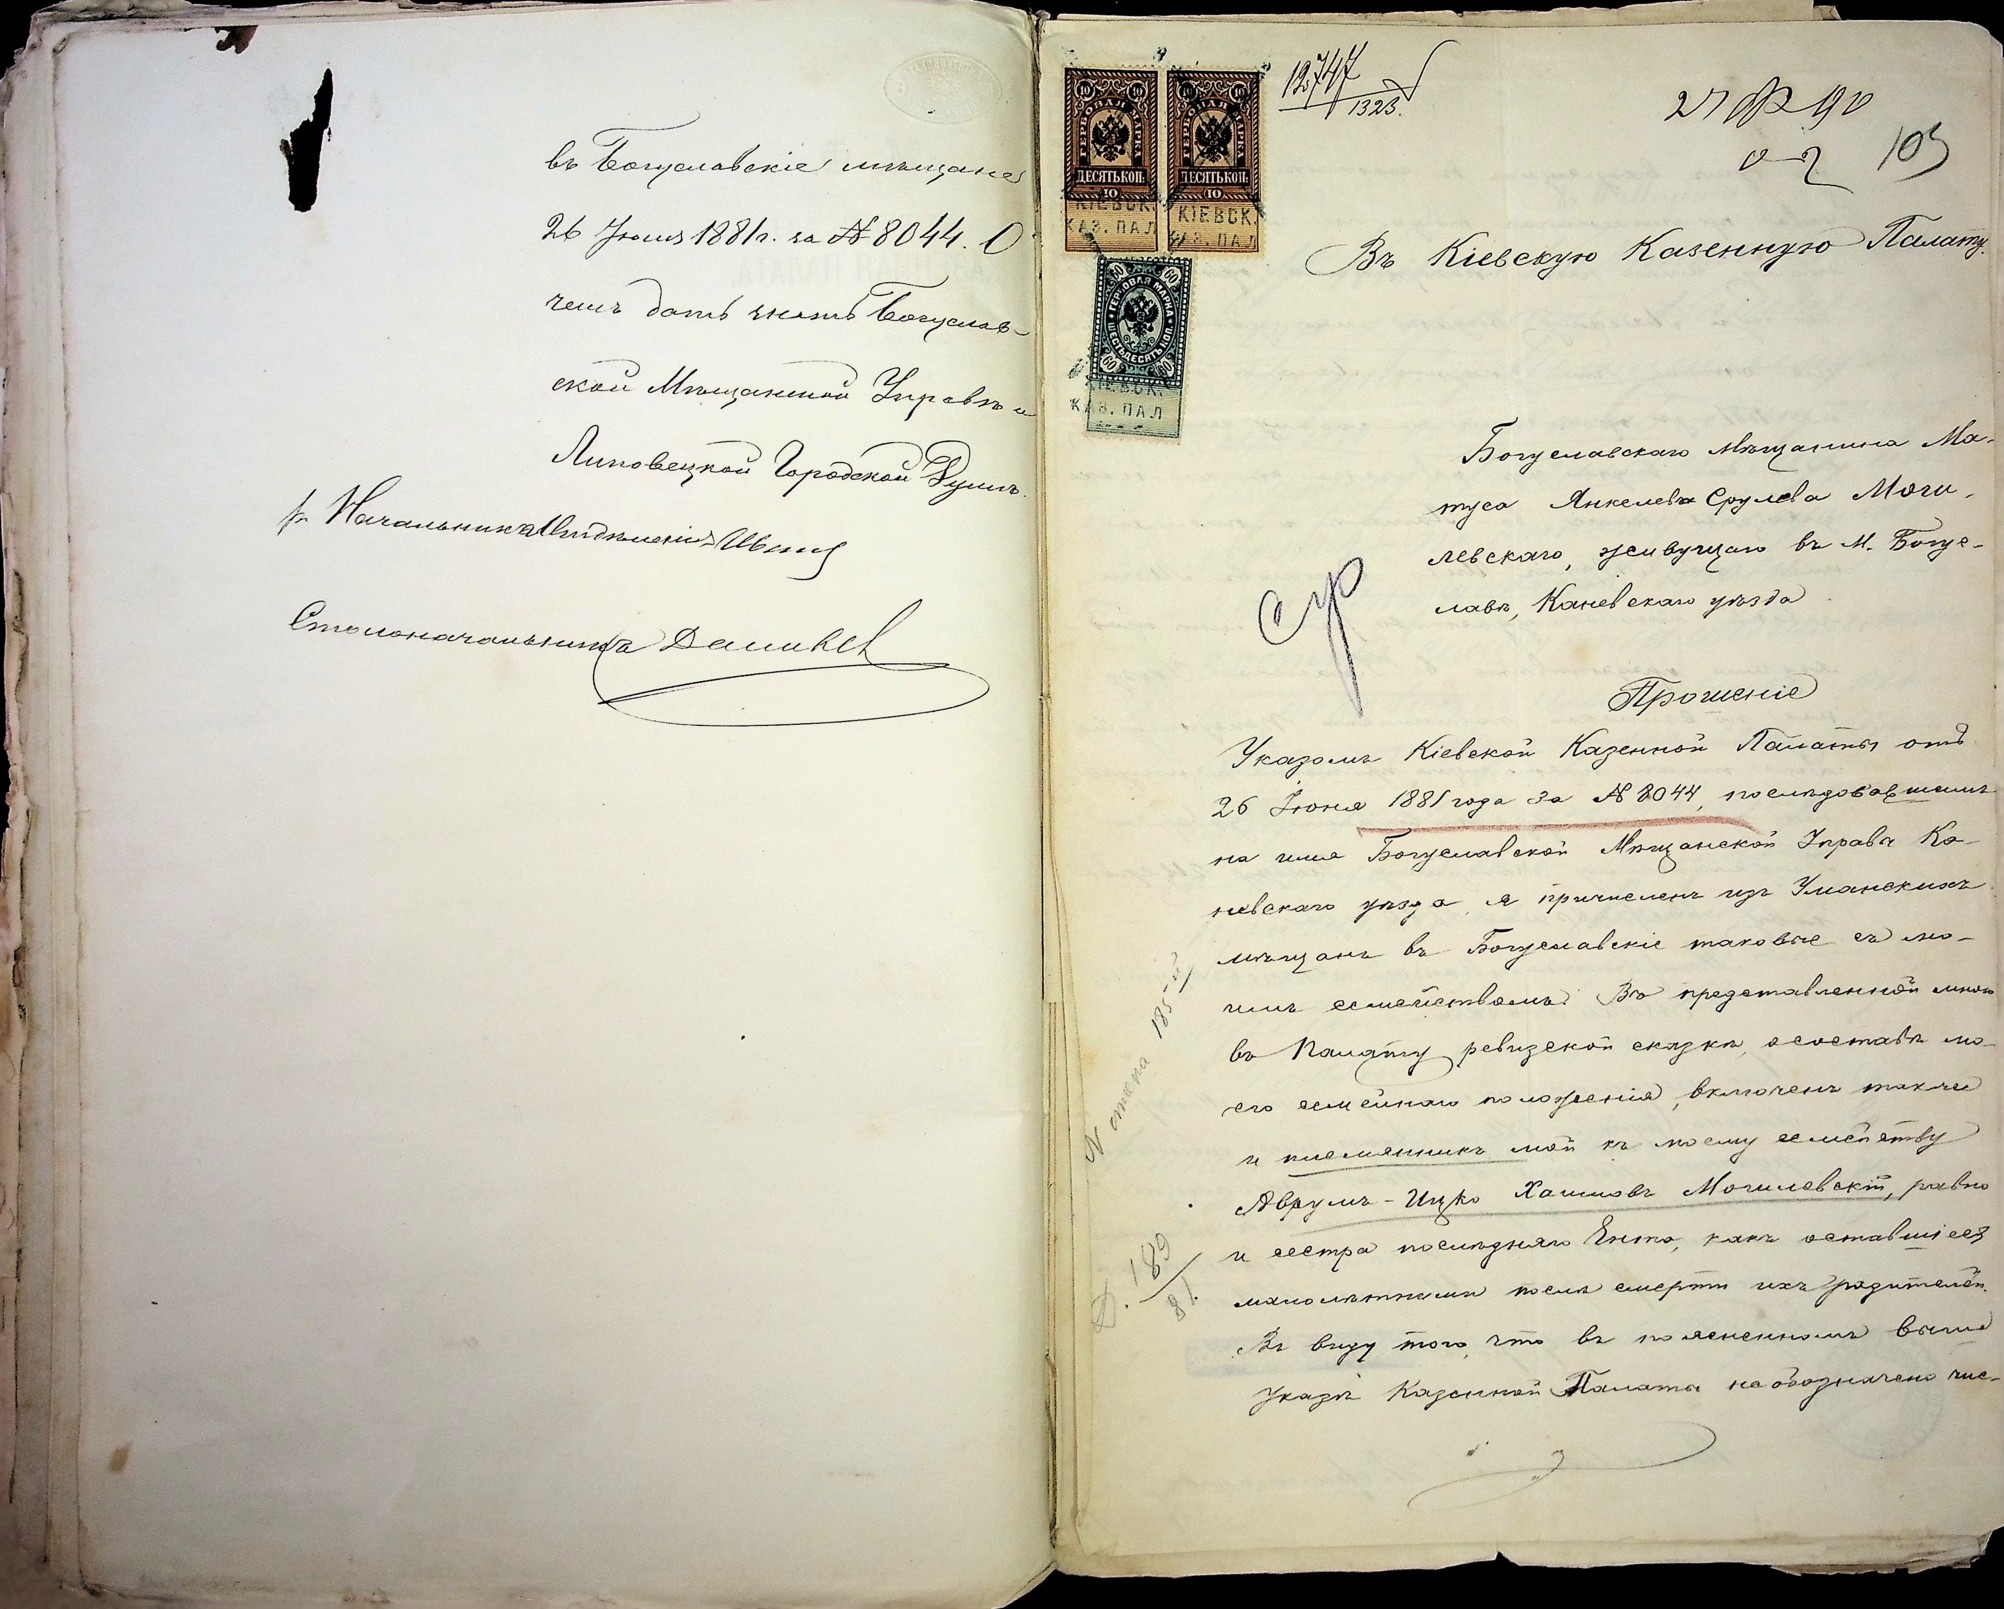 въ Богуславскіе мѣщане
26 Іюня 1881 г. за № 8044. О
чемъ дать знать Богуслав-
ской Мѣщанской Управѣ и
Липовецкой Городской Думѣ.
Начальникъ Отдѣленія
Столоначальникъ
12747
1323.
27 90
103
ГЕРБОВАЯ МАРКА
ДЕСЯТЬ КОП.
10
КІЕВСК.
КАЗ. ПАЛ
ГЕРБОВАЯ МАРКА
ДЕСЯТЬ КОП.
10
КІЕВСК.
КАЗ. ПАЛ
ГЕРБОВАЯ МАРКА
ШЕСТЬДЕСЯТЪ КОП.
60
КІЕВСК.
КАЗ. ПАЛ
Въ Кіевскую Казенную Палату.
Богуславскаго мѣщанина Ма-
туса Янкелева Срулева Моги-
левскаго, живущаго въ м. Богу-
славѣ, Каневскаго уѣзда
Прошеніе
Указомъ Кіевской Казенной Палаты отъ
26 Іюня 1881 года за № 8044, послѣдовавшимъ
на имя Богуславской Мѣщанской Управы Ка-
невскаго уѣзда, я причисленъ изъ Уманскихъ
мѣщанъ въ Богуславскіе таковые съ мо-
имъ семействомъ. Въ представленной мною
въ Палату ревизской сказкѣ, о составѣ мо-
его семейнаго положенія, включенъ также
и племянникъ мой къ моему семейству
Аврумъ-Ицко Хаимовъ Могилевскій, равно
и сестра послѣдняго Ента, какъ оставшіеся
малолѣтними послѣ смерти ихъ родителей.
Въ виду того, что въ поясненномъ выше
Указѣ Казенной Палаты не обозначено чис-
Д. 189
81.